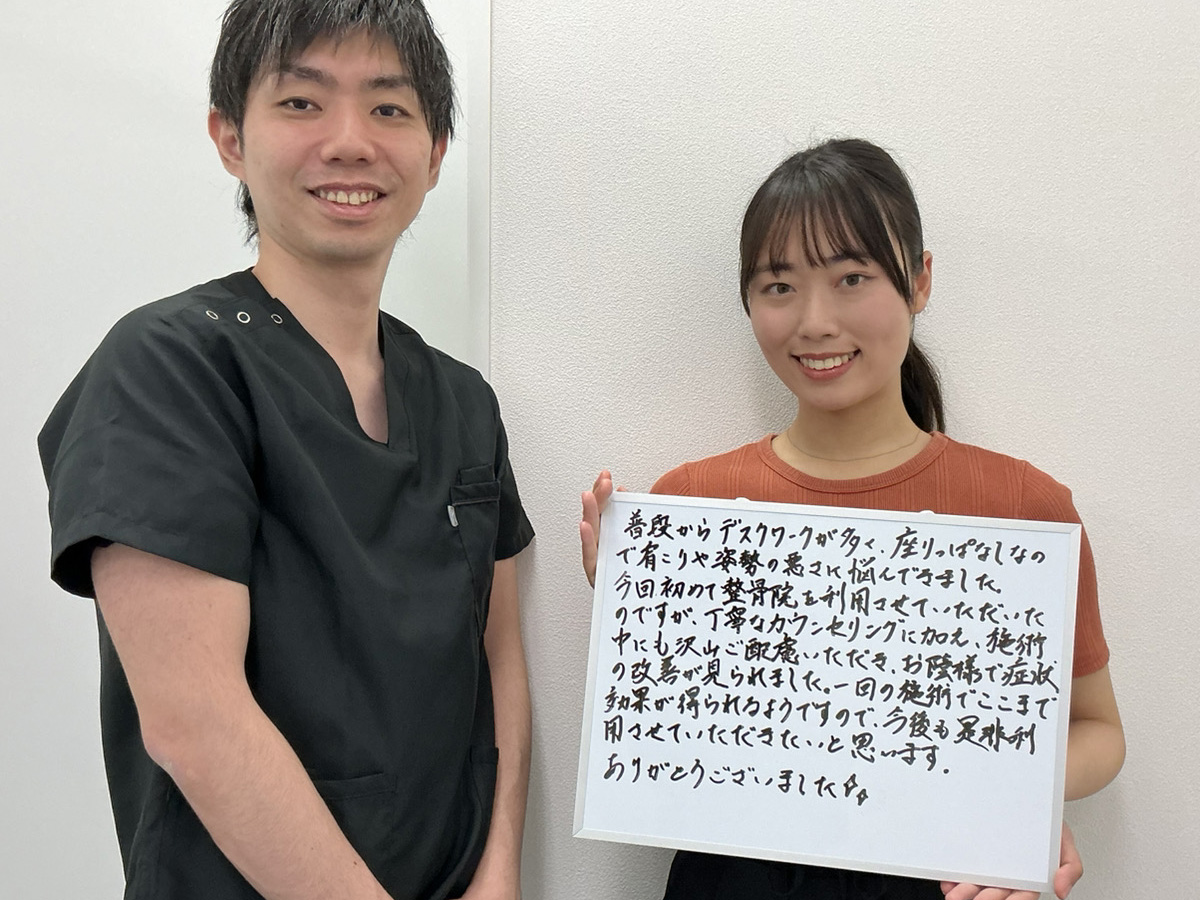 普段からデスクワークが多く、座りっぱなしなの
で肩こりや姿勢の悪さに悩んできました。
今回初めて整骨院を利用させていただいた
のですが、丁寧なカウンセリングに加え、施術
中にも沢山ご配慮いただき、お陰様で症状
の改善が見られました。一回の施術でここまで
効果が得られるようですので、今後も是非利
用させていただきたいと思います。
ありがとうございました